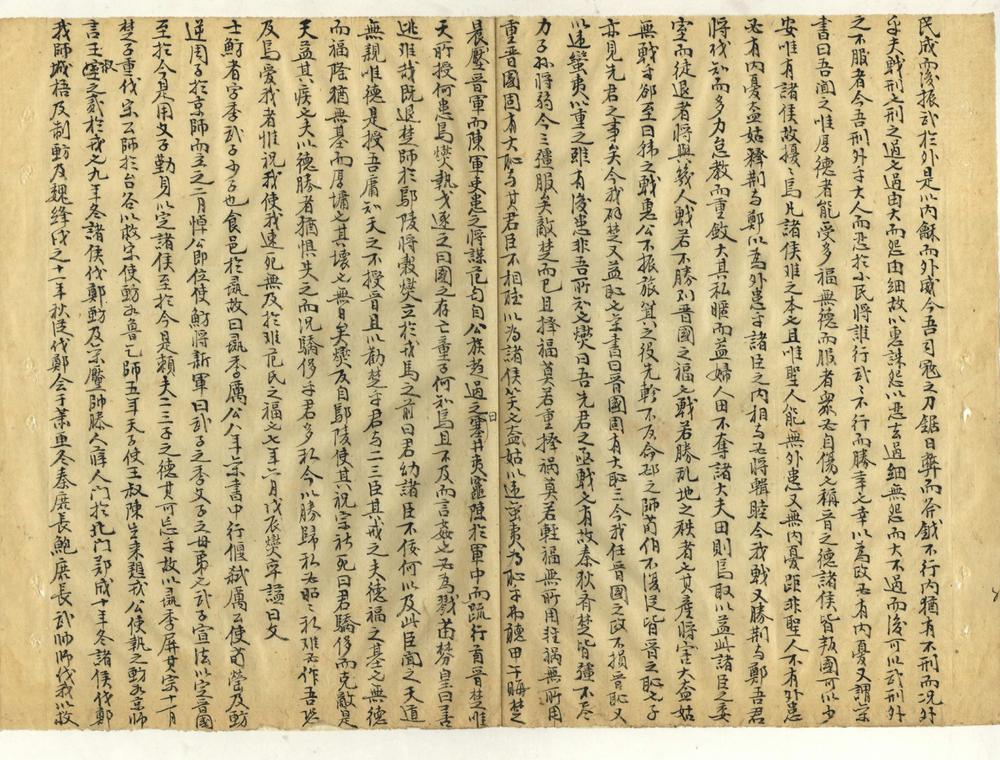 民成而後振武於外是以內龢而外威今吾司寇之刀鋸日弊而斧鉞不行內猶有不刑而況外
乎夫戰刑也刑之過也過由大而怨由細故以惠誅怨以忍去過細無怨而大不過而後可以武刑外
之不服者今吾刑外乎大人而忍於小民將誰行武〻不行而勝幸也幸以為政必有內憂又謂欒
書曰吾聞之唯厚德者能受多福無德而服者衆必自傷也稱晉之德諸侯皆叛國可以少
安唯有諸侯故擾〻焉凡諸侯難之本也且唯聖人能無外患又無內憂距非聖人不有外患
必有內憂盍姑釋荊與鄭以為外患乎諸臣之內相與必將輯睦今我戰又勝荊與鄭吾君
將伐知而多力怠教而重斂大其私暱而益婦人田不奪諸大夫田則焉取以益此諸臣之委
室而徒退者將與幾人戰若不勝則晉國之福也戰若勝亂地之秩者也其產將害大盍姑
無戰乎郤至曰韩之戰惠公不振旅箕之役先軫不反命邲之師荀伯不復從皆晉之恥也子
亦見先君之事矣今我避楚又益恥也欒書曰晉國固有大恥三今我任晉國之政不損晉恥又
以違蠻夷以重之雖有後患非吾所知也燮曰吾先君之亟戰也有故秦狄齊楚皆彊不盡
力子孫將弱今三彊服矣敵楚而已且擇福莫若重擇禍莫若輕福無所用輕禍無所用
重晉國固有大恥與其君臣不相聽以為諸侯笑也盍姑以違蠻夷為恥乎弗聽甲午晦楚
晨壓晉軍而陳軍吏患之將謀范匄自公族趨過之曰塞井夷竈陳於軍中而疏行首晉楚唯
天所授何患焉燮執戈逐之曰國之存亡童子何知焉且不及而言姦也必為戮苗棼皇曰善
逃難哉既退楚師於鄢陵將穀燮立於戎馬之前曰君幼諸臣不佞何以及此臣聞之天道
無親唯德是授吾庸知天之不授晉且以勸楚乎君與二三臣其戒之夫德福之基也無德
而福隆猶無基而厚墉也其壞也無日矣燮反自鄢陵使其祝宗祈死曰君驕侈而克敵是
天益其疾也夫以德勝者猶懼失之而況驕侈乎君多私今以勝歸私必昭〻私難必作吾恐
及焉愛我者惟祝我使我速死無及於難范氏之福也七年六月戊辰燮卒謚曰文
士魴者字季武子少子也食邑於彘故曰彘季厲公八年欒書中行偃弒厲公使荀罃及魴
逆周子於京師而立之二月悼公即位使魴將新軍曰武子之季文子之母弟也武子宣法以定晉國
至於今是用文子勤身以定諸侯至於今是賴夫二三子之德其可忘乎故以彘季屏其宗十一月
楚子重伐宋公師於台谷以救宋使魴如魯乞師五年天子使王叔陳生來愬我公使執之魴如京師
言王叔之貳於戎也九年冬諸侯伐鄭魴及欒黶帥滕人薛人門於北門鄭成十年冬諸侯伐鄭
我師城梧及制魴及魏絳戍之十一年秋從伐鄭會于蕭魚冬秦庶長鮑庶長武帥師伐我以救